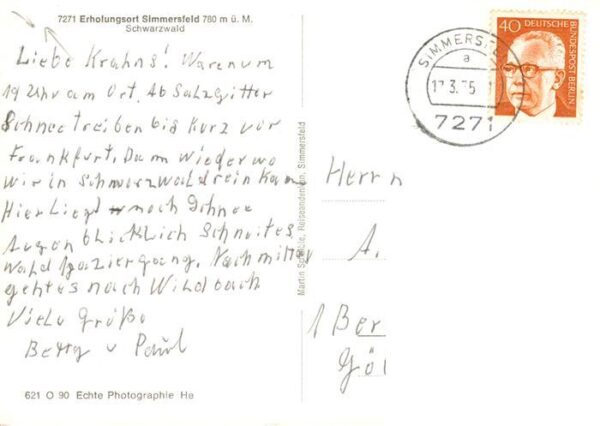 7271 Erholungsort Simmersfeld 780 m ü. M.
Schwarzwald
Liebe Krahns! Waren um
19 Uhr am Ort. Ab Salzgitter
Schneetreiben bis kurz vor
Frankfurt. Dann wieder wo
wir in Schwarzwald rein kam
Hier Liegt noch Schnee
Augen blicklich Schneites
Wald spaziergang. Nachmittag
gehtes nach Wildbach
Viele Grüße
Betty u Paul
621 O 90 Echte Photographie He
Martin Reiseandenken, Simmersfeld
SIMMERSFE
a
3.75
7271
40 DEUTSCHE
BUNDESPOST BERLIN
Herrn
A.
1 Ber
Gö